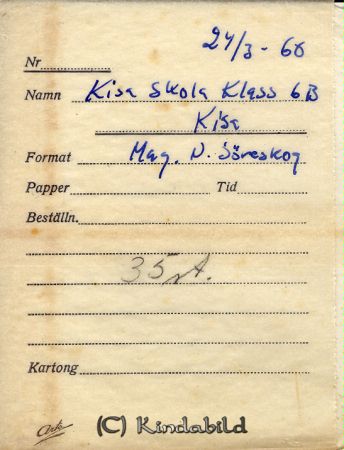 24/3 - 66
Nr
Namn Kisa Skola Klass 6B
Kisa
Format Mag. N. Söreskog
Papper Tid
Beställn.
35 st.
Kartong
Ark
(C) Kindabild